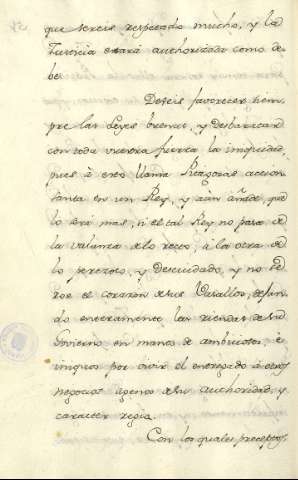 que sereis respetado mucho, y la
Justicia estará authorizada como de
be.
Deveis favorecer siem
pre las Leyes buenas, y desbaratar
con toda vuestra fuerza la impiedad,
pues á esto llama Pitagoras accion
santa en un Rey, y aun añade, que
lo será mas, si el tal Rey no pasa de
la valanza de lo recto, á la otra de
lo perezoso, y descuidado, y no
el corazon de sus Vasallos, dejan
do enteramente las riendas de su
Govierno en manos de ambiciosos, é
iniquos por vivir el entregado á otros
negocios agenos de su authoridad, y
caracter regio.
Con los quales preceptos,